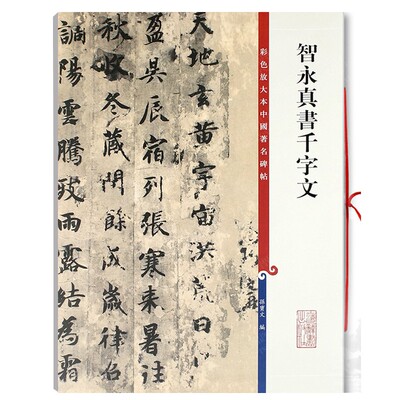 智永真書千字文
彩色放大本中國著名碑帖
孫寶文 編
天地玄黄宇宙洪荒日
盈昃辰宿列張寒来暑往
秋收冬藏閏餘成歲律呂
調陽雲騰致雨露結為霜